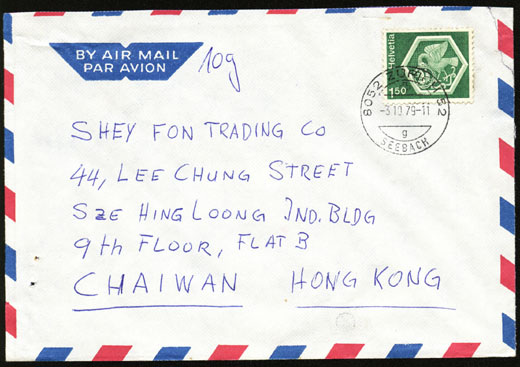 BY AIR MAIL
PAR AVION
10g
Helvetia
150
8052 ZÜRICH 52
-3.10.79-11
g
SEEBACH
SHEY FON TRADING CO
44, LEE CHUNG STREET
SZE HING LOONG IND. BLDG
9th FLOOR, FLAT B
CHAIWAN HONG KONG